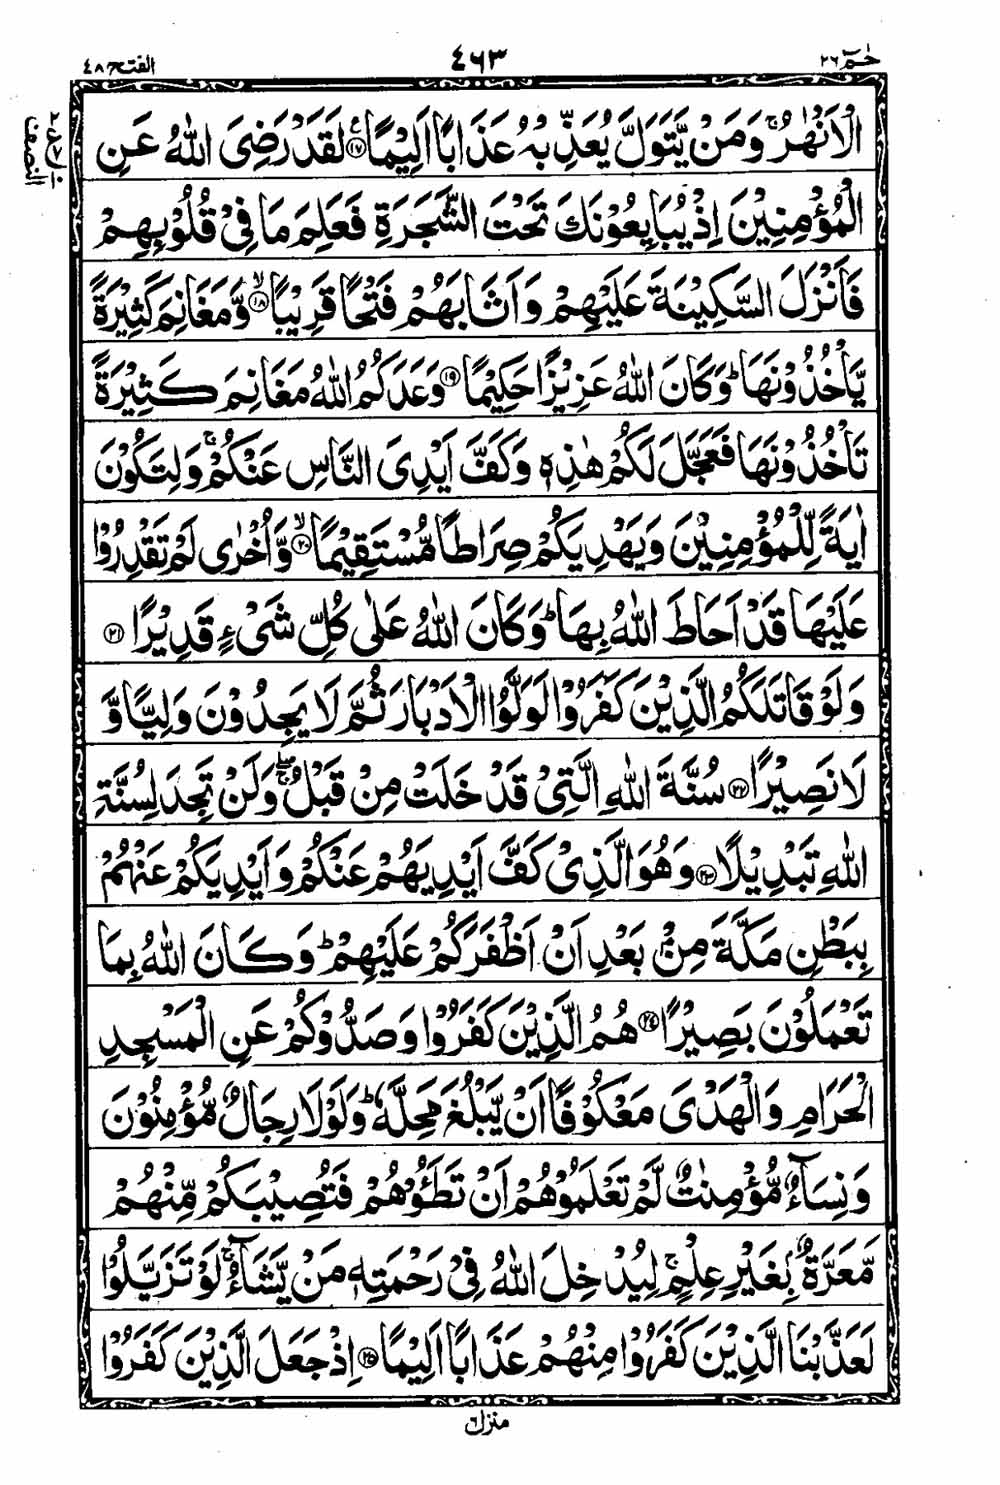 حٰمٓ ٢٦
٤٦٣
الفتح ٤٨
الْاَنْهٰرُ ۚ وَمَنْ يَّتَوَلَّ يُعَذِّبْهُ عَذَابًا اَلِيْمًا ﴿١٧﴾ ع لَقَدْ رَضِىَ اللّٰهُ عَنِ
الْمُؤْمِنِيْنَ اِذْ يُبَايِعُوْنَكَ تَحْتَ الشَّجَرَةِ فَعَلِمَ مَا فِىْ قُلُوْبِهِمْ
فَاَنْزَلَ السَّكِيْنَةَ عَلَيْهِمْ وَاَثَابَهُمْ فَتْحًا قَرِيْبًا ﴿١٨﴾ ۙ وَّمَغَانِمَ كَثِيْرَةً
يَّاْخُذُوْنَهَا ؕ وَكَانَ اللّٰهُ عَزِيْزًا حَكِيْمًا ﴿١٩﴾ وَعَدَكُمُ اللّٰهُ مَغَانِمَ كَثِيْرَةً
تَاْخُذُوْنَهَا فَعَجَّلَ لَكُمْ هٰذِهٖ وَكَفَّ اَيْدِىَ النَّاسِ عَنْكُمْ ۚ وَلِتَكُوْنَ
اٰيَةً لِّلْمُؤْمِنِيْنَ وَيَهْدِيَكُمْ صِرَاطًا مُّسْتَقِيْمًا ﴿٢٠﴾ ۙ وَّاُخْرٰى لَمْ تَقْدِرُوْا
عَلَيْهَا قَدْ اَحَاطَ اللّٰهُ بِهَا ؕ وَكَانَ اللّٰهُ عَلٰى كُلِّ شَىْءٍ قَدِيْرًا ﴿٢١﴾
وَلَوْ قَاتَلَكُمُ الَّذِيْنَ كَفَرُوْا لَوَلَّوُا الْاَدْبَارَ ثُمَّ لَا يَجِدُوْنَ وَلِيًّا وَّ
لَا نَصِيْرًا ﴿٢٢﴾ سُنَّةَ اللّٰهِ الَّتِىْ قَدْ خَلَتْ مِنْ قَبْلُ ۖۚ وَلَنْ تَجِدَ لِسُنَّةِ
اللّٰهِ تَبْدِيْلًا ﴿٢٣﴾ وَهُوَ الَّذِىْ كَفَّ اَيْدِيَهُمْ عَنْكُمْ وَاَيْدِيَكُمْ عَنْهُمْ
بِبَطْنِ مَكَّةَ مِنْۢ بَعْدِ اَنْ اَظْفَرَكُمْ عَلَيْهِمْ ؕ وَكَانَ اللّٰهُ بِمَا
تَعْمَلُوْنَ بَصِيْرًا ﴿٢٤﴾ هُمُ الَّذِيْنَ كَفَرُوْا وَصَدُّوْكُمْ عَنِ الْمَسْجِدِ
الْحَرَامِ وَالْهَدْىَ مَعْكُوْفًا اَنْ يَّبْلُغَ مَحِلَّهٗ ؕ وَلَوْلَا رِجَالٌ مُّؤْمِنُوْنَ
وَنِسَآءٌ مُّؤْمِنٰتٌ لَّمْ تَعْلَمُوْهُمْ اَنْ تَطَـُٔوْهُمْ فَتُصِيْبَكُمْ مِّنْهُمْ
مَّعَرَّةٌۢ بِغَيْرِ عِلْمٍ ۚ لِيُدْخِلَ اللّٰهُ فِىْ رَحْمَتِهٖ مَنْ يَّشَآءُ ۚ لَوْ تَزَيَّلُوْا
لَعَذَّبْنَا الَّذِيْنَ كَفَرُوْا مِنْهُمْ عَذَابًا اَلِيْمًا ﴿٢٥﴾ اِذْ جَعَلَ الَّذِيْنَ كَفَرُوْا
منزل ٦
النصف